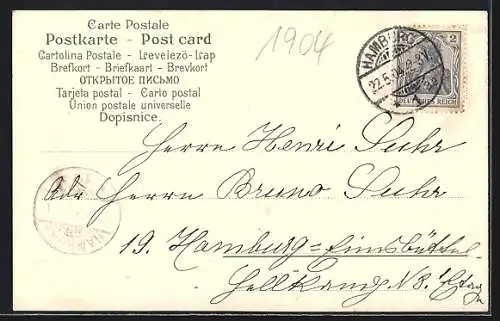 Carte Postale
Postkarte - Post card
Cartolina Postale - Levelező-Lap
Brefkort - Briefkaart - Brevkort
ОТКРЫТОЕ ПИСЬМО
Tarjeta postal - Carto postal
Union postale universelle
Dopisnice.
1904
HAMBURG
22.5.04
1
2
DEUTSCHES REICH
Herrn Henri Suhr
Adr Herrn Bruno Suhr
19. Hamburg=Eimsbüttel
Hellkamp N 8. I Etage
HAMBURG